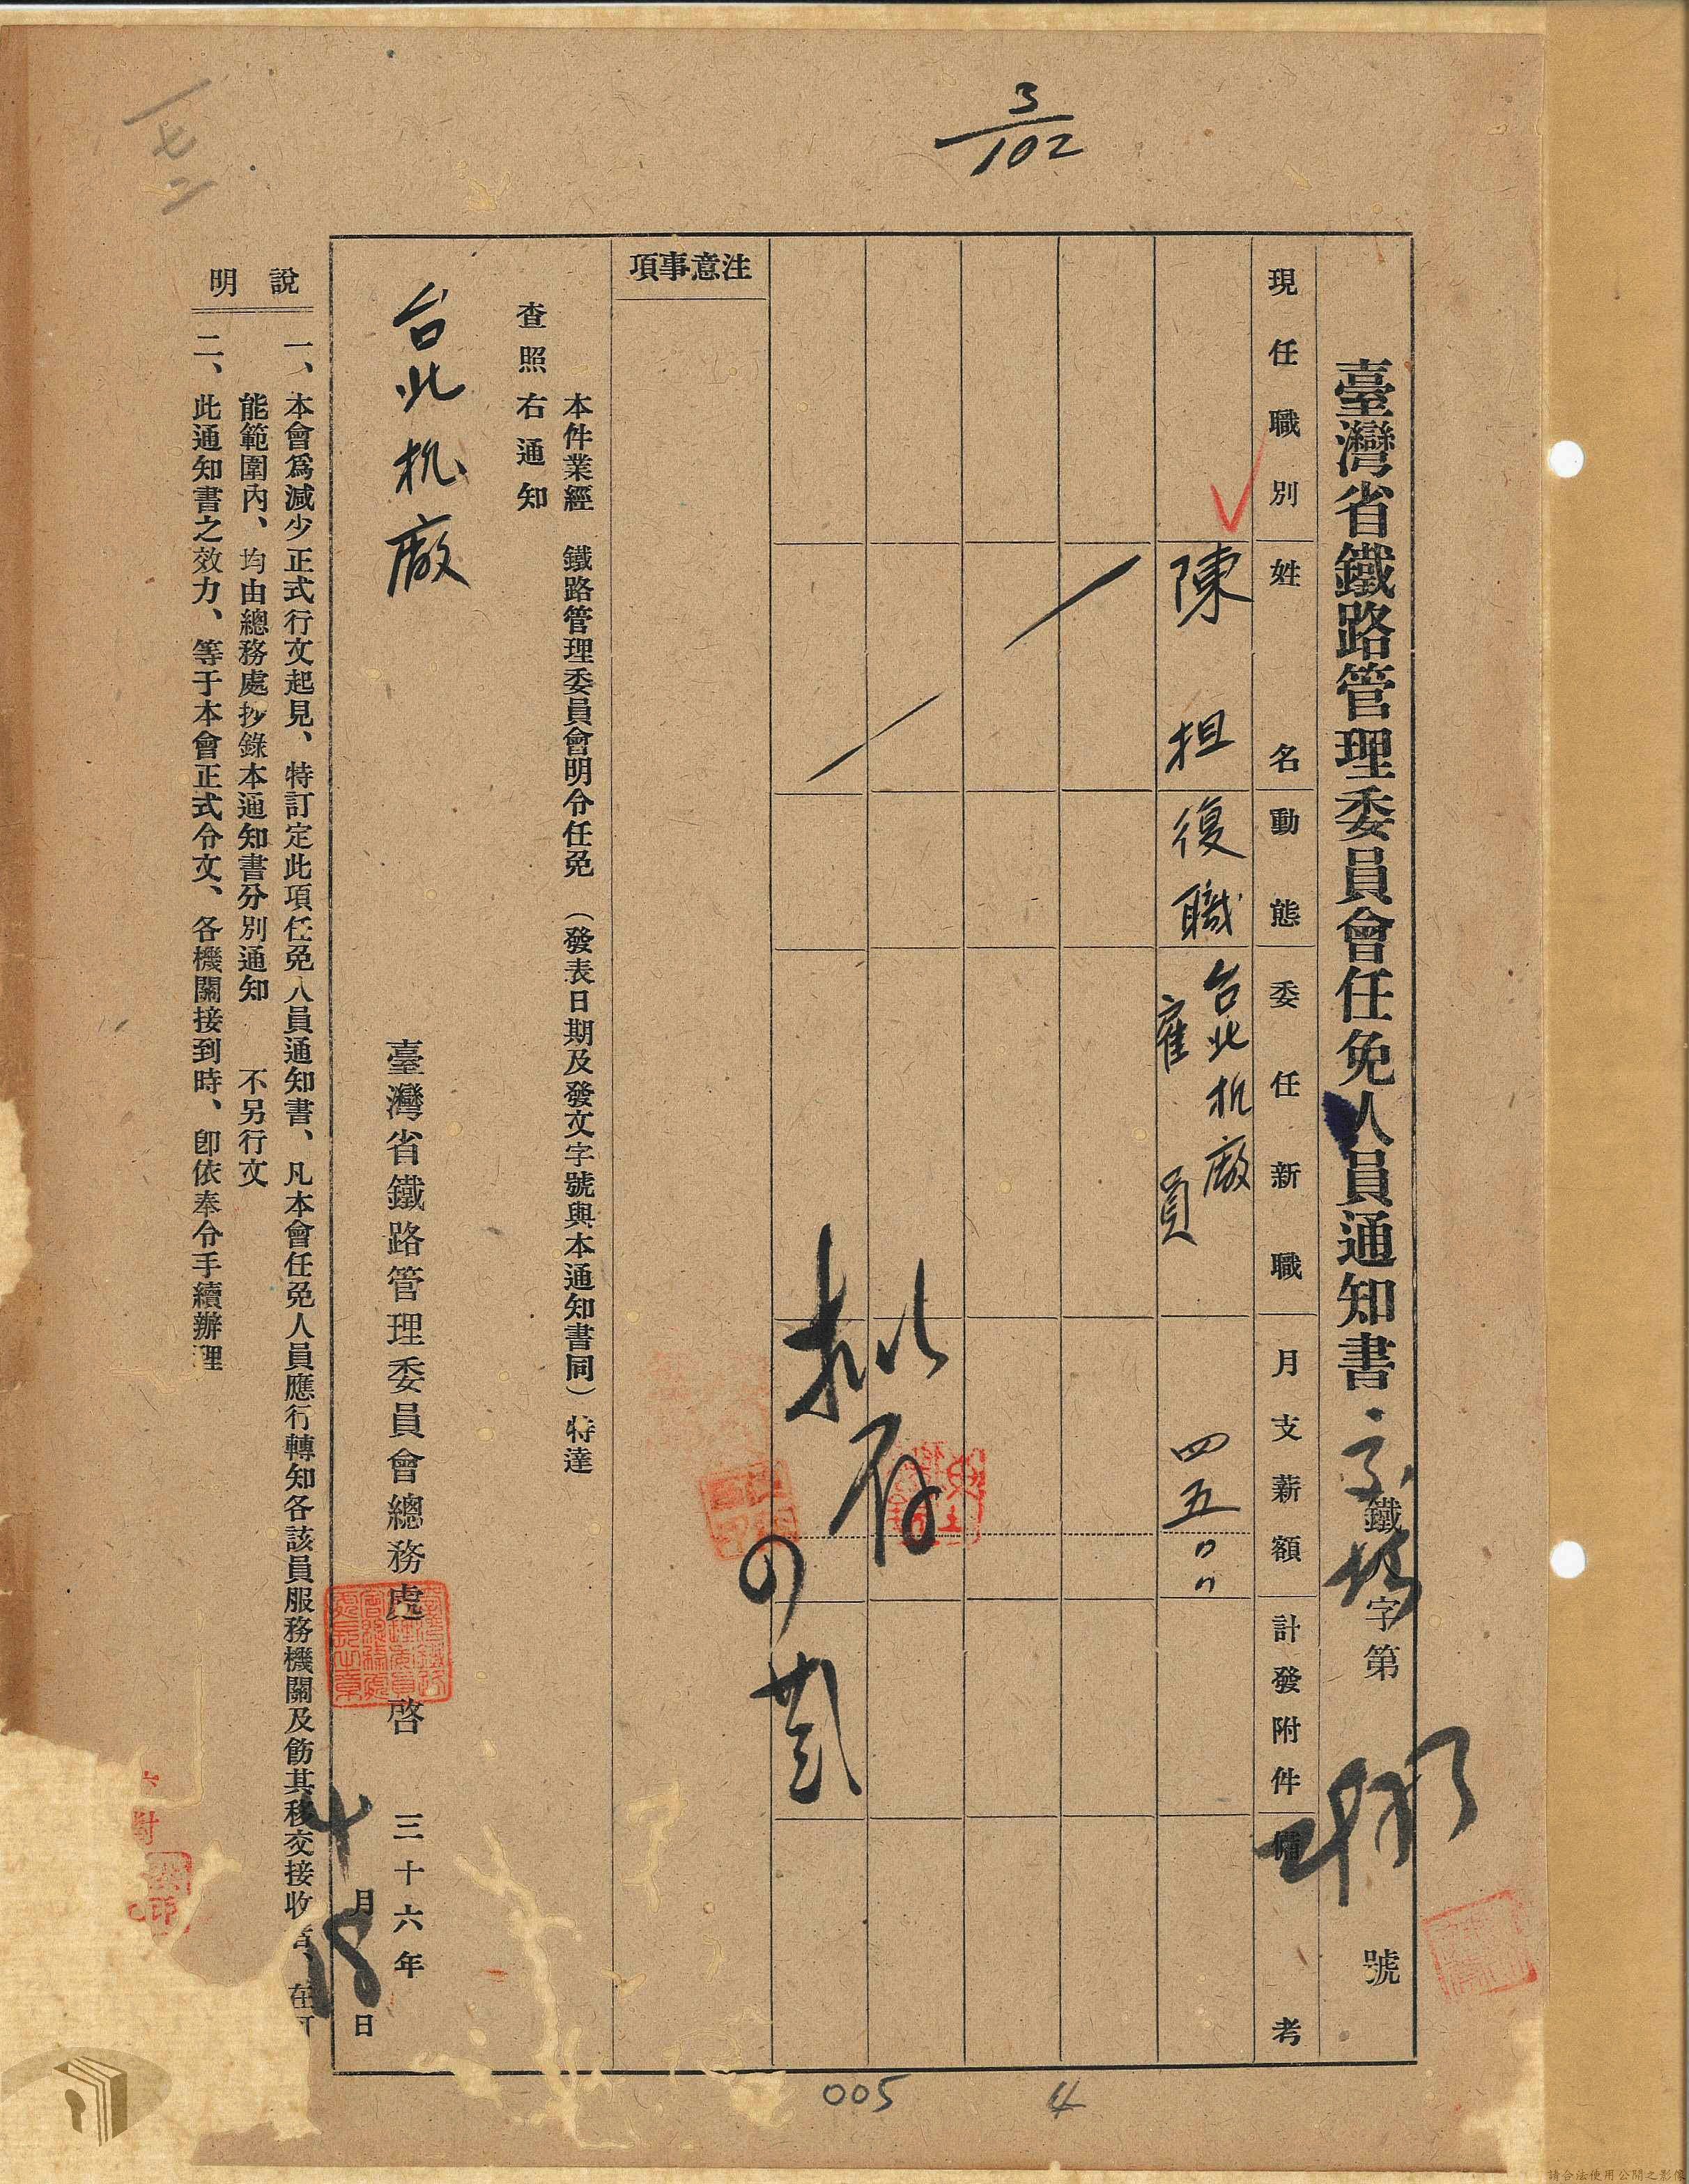 3/102
一七二
臺灣省鐵路管理委員會任免人員通知書
鐵 字第 號
現任職別 姓名 動態 委任新職 月支薪額 計發附件 備考
陳担 復職 台北机廠 雇員 四五〃〃
批存
注意事項
本件業經 鐵路管理委員會明令任免 (發表日期及發文字號與本通知書同)特達
查照右通知
台北机廠
臺灣省鐵路管理委員會總務處 啓 三十六年
4月18日
說明
一、本會爲減少正式行文起見、特訂定此項任免人員通知書、凡本會任免人員應行轉知各該員服務機關及飭其移交接收者、在可
能範圍內、均由總務處抄錄本通知書分別通知 不另行文
二、此通知書之效力、等于本會正式令文、各機關接到時、卽依奉令手續辦理
005
4
請合法使用公開之影像